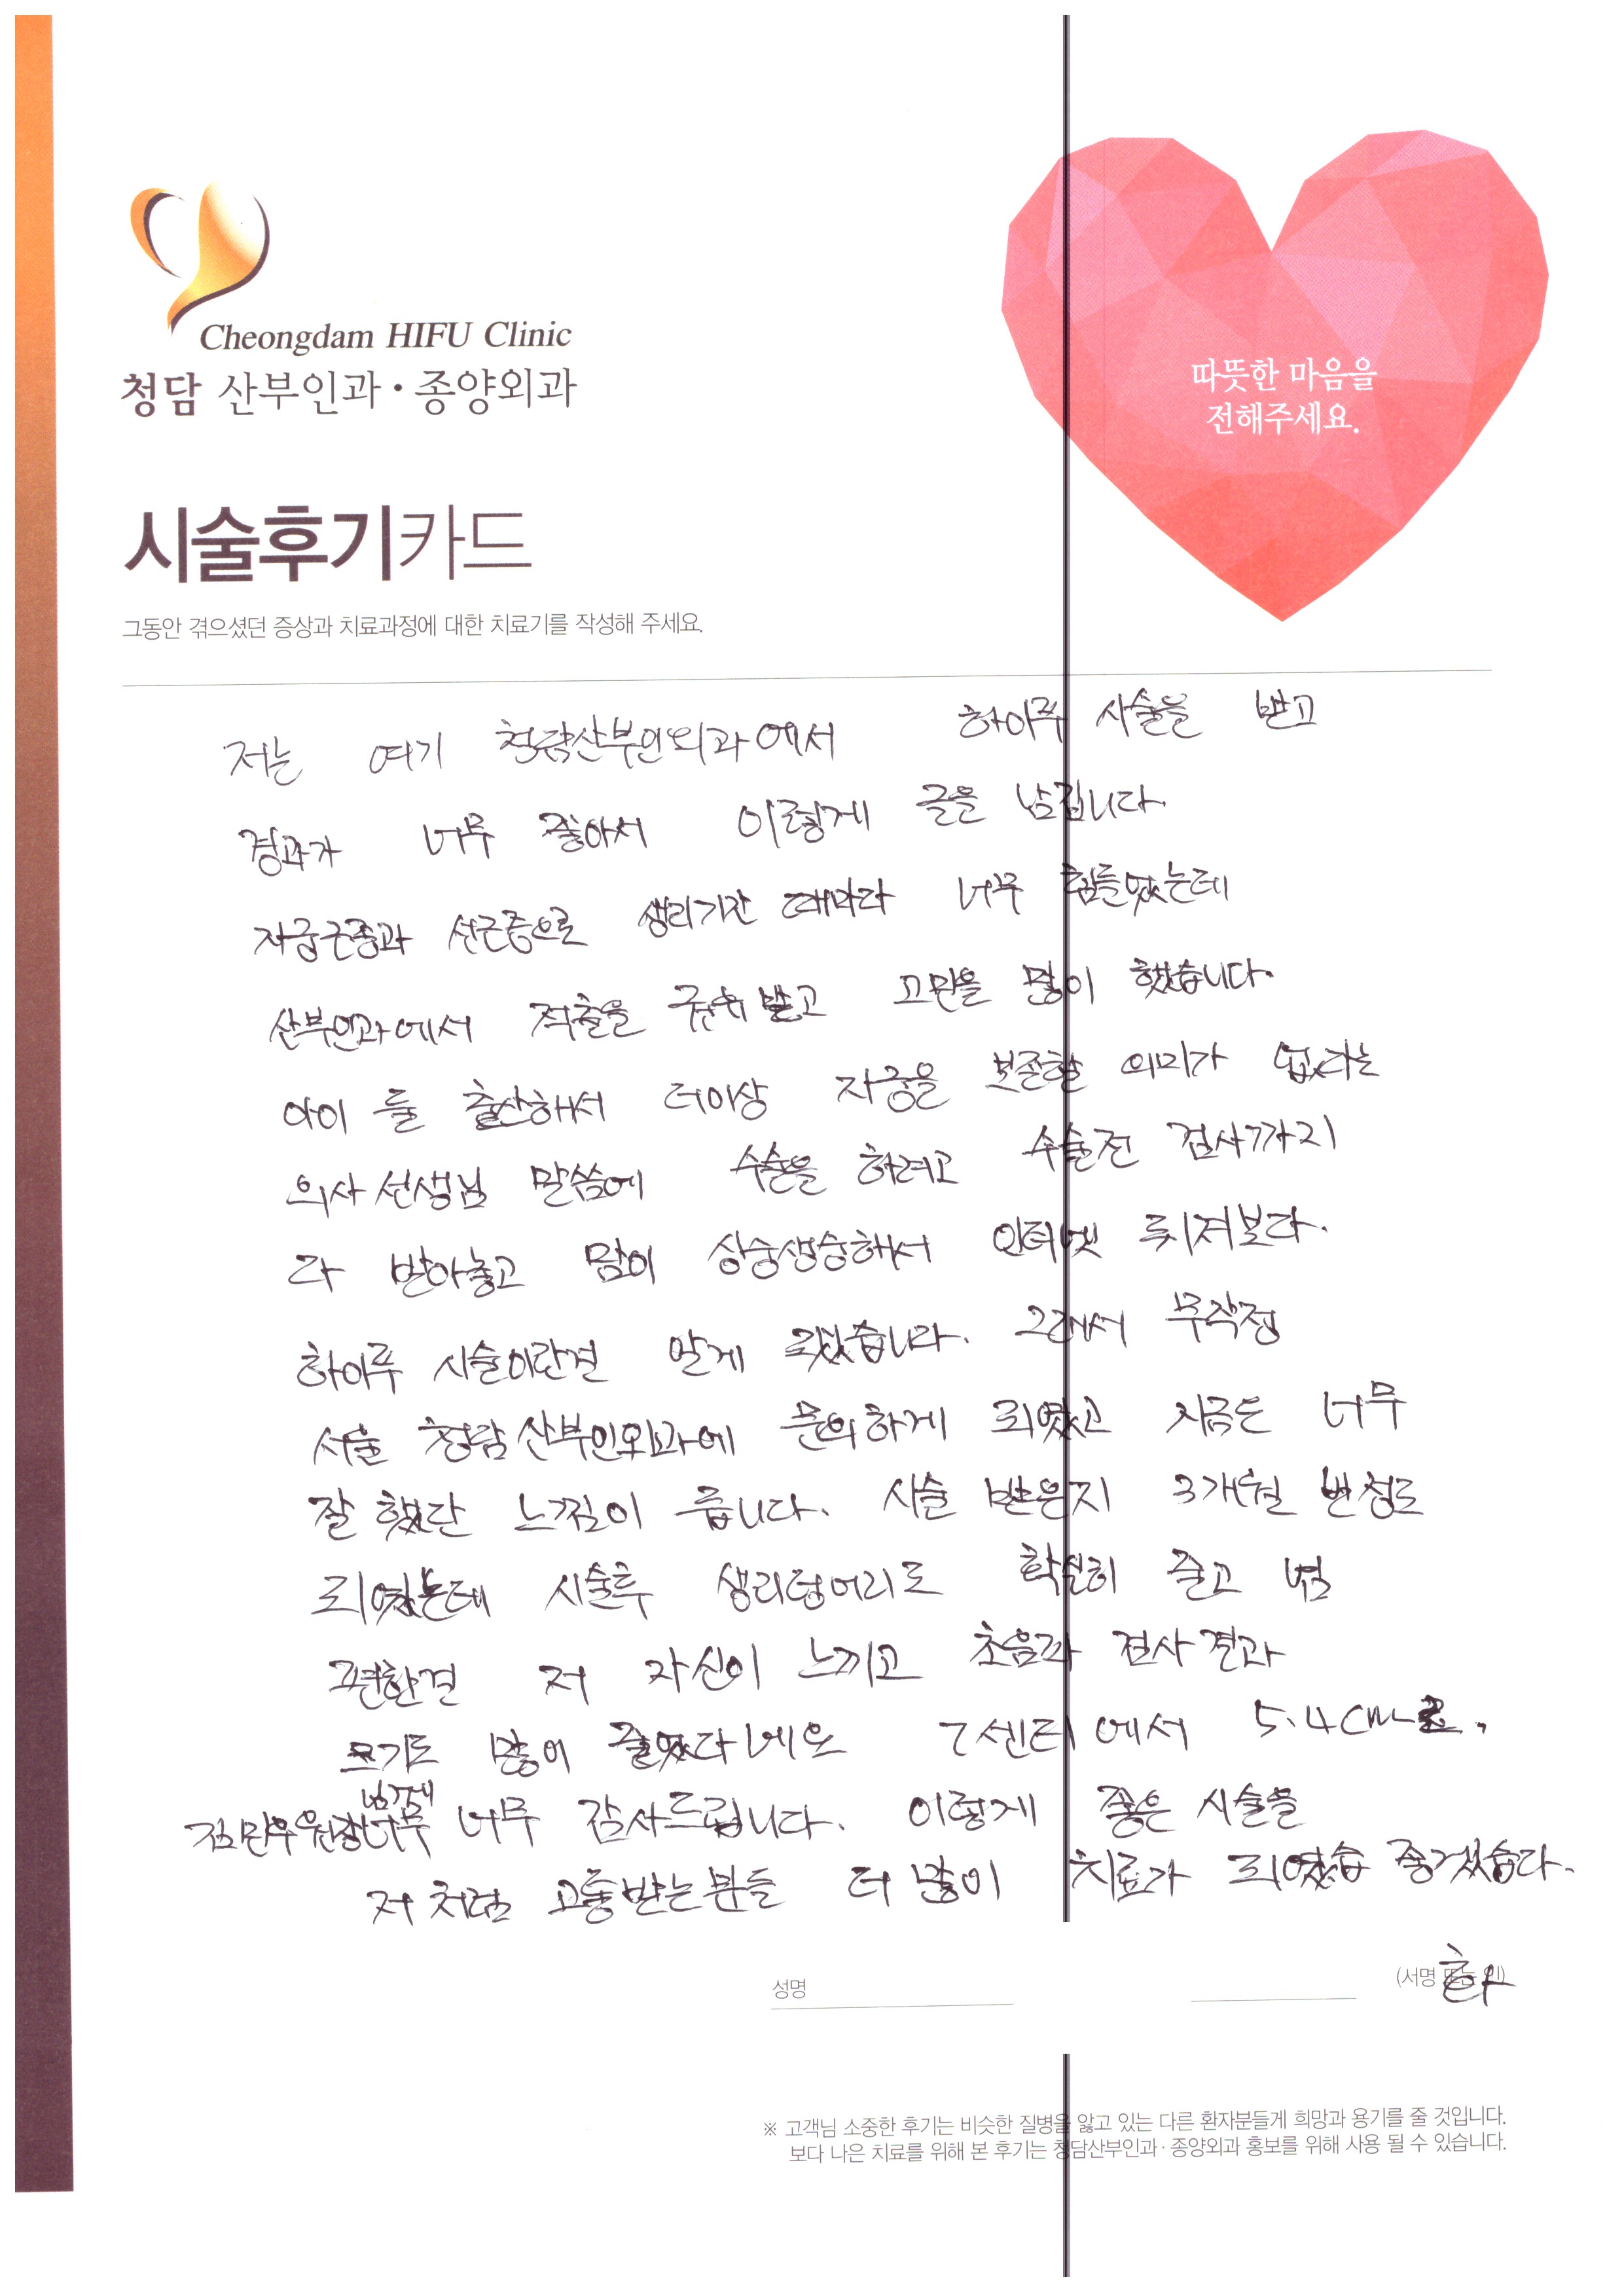 Cheongdam HIFU Clinic
청담 산부인과·종양외과
따뜻한 마음을
전해주세요.
시술후기카드
그동안 겪으셨던 증상과 치료과정에 대한 치료기를 작성해 주세요.
저는 여기 청담산부인외과에서 하이푸 시술을 받고
경과가 너무 좋아서 이렇게 글을 남깁니다.
자궁근종과 선근증으로 생리기간 때마다 너무 힘들었는데
산부인과에서 적출을 권유받고 고민을 많이 했습니다.
아이 둘 출산해서 더이상 자궁을 보존할 의미가 없다는
의사선생님 말씀에 수술을 하려고 수술전 검사까지
다 받아놓고 맘이 싱숭생숭해서 인터넷 뒤져보다.
하이푸 시술이란걸 알게 되었습니다. 그래서 무작정
서울 청담산부인외과에 문의하게 되였고 지금은 너무
잘 했단 느낌이 듭니다. 시술 받은지 3개월 반정도
되였는데 시술후 생리덩어리도 확실히 줄고 넘
편한걸 저 자신이 느끼고 초음파 검사결과
크기도 많이 줄었다네요 7센티에서 5.4cm로.
김민우원장님께 너무 감사드립니다. 이렇게 좋은 시술을
저처럼 고통받는분들 더 많이 치료가 되였음 좋겠습다.
성명
(서명 또는 인)
※ 고객님 소중한 후기는 비슷한 질병을 앓고 있는 다른 환자분들게 희망과 용기를 줄 것입니다.
보다 나은 치료를 위해 본 후기는 청담산부인과·종양외과 홍보를 위해 사용 될 수 있습니다.